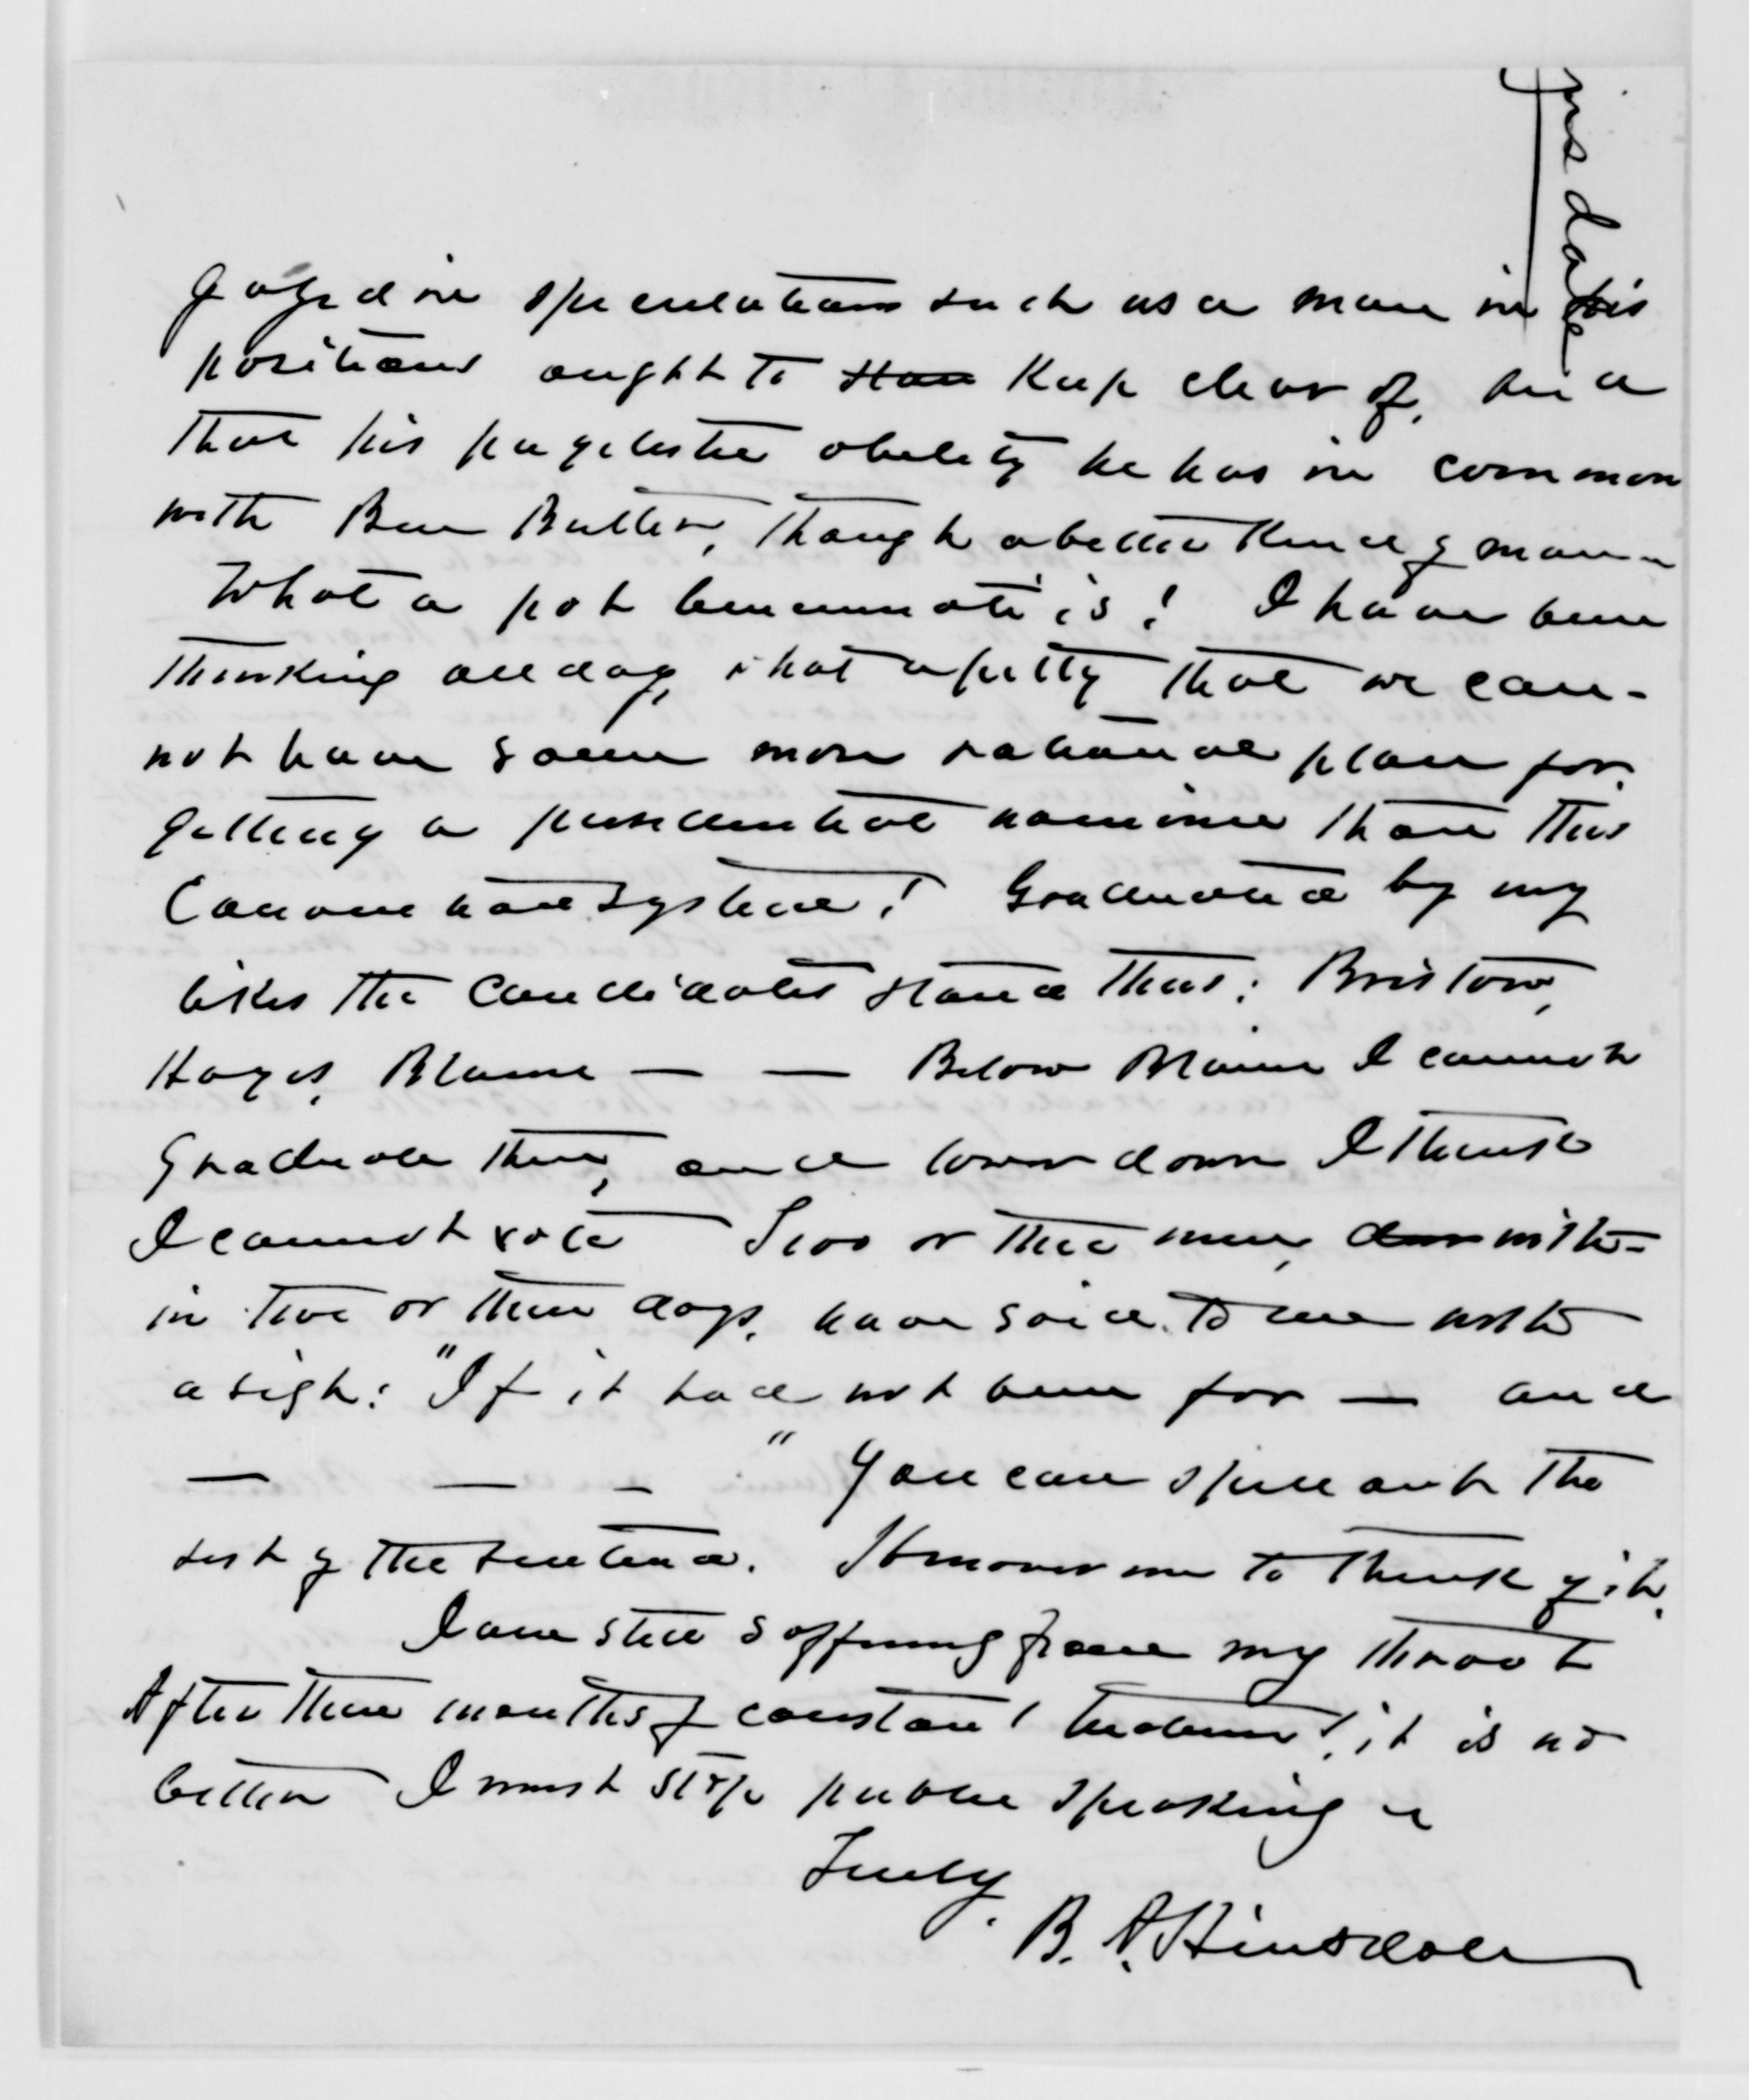 gaged in speculations such as a man in his
position ought to ~~stan~~ keep clear of, and
that his pugilistic ability he has in common
with Ben Butler, though a better kind of man.
What a pot Cincinnati is! I have been
thinking all day, what a pitty that we can-
not have some more rational plan for
getting a presidential nominee than this
Convention System! Graduated by my
likes the candidates stand thus: Bristow,
Hayes, Blaine — — Below Blaine I cannot
graduate them, and lower down I think
I cannot vote Two or three men, with-
in two or three days, have said to me with
a sigh: "If it had not been for — and
— — — " You can spell out the
rest of the sentence. It moves me to think of it.
I am still suffering from my throat
After three months of constant treatment, it is no
better I must stop public speaking
Truly,
B. A. Hinsdale
insdale